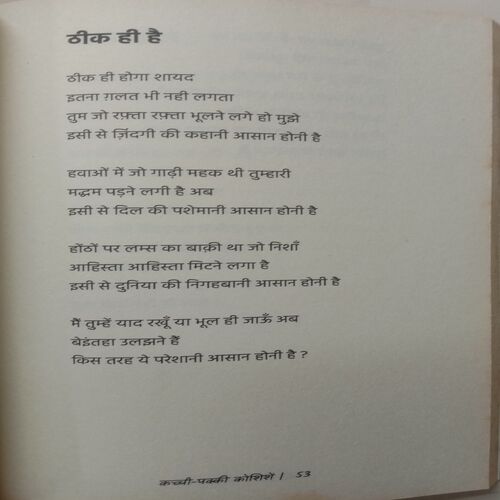 ठीक ही है
ठीक ही होगा शायद
इतना ग़लत भी नही लगता
तुम जो रफ़्ता रफ़्ता भूलने लगे हो मुझे
इसी से ज़िंदगी की कहानी आसान होनी है
हवाओं में जो गाढ़ी महक थी तुम्हारी
मद्धम पड़ने लगी है अब
इसी से दिल की पशेमानी आसान होनी है
होंठों पर लम्स का बाक़ी था जो निशाँ
आहिस्ता आहिस्ता मिटने लगा है
इसी से दुनिया की निगहबानी आसान होनी है
मैं तुम्हें याद रखूँ या भूल ही जाऊँ अब
बेइंतहा उलझने हैं
किस तरह ये परेशानी आसान होनी है ?
कच्ची-पक्की कोशिशें | 53